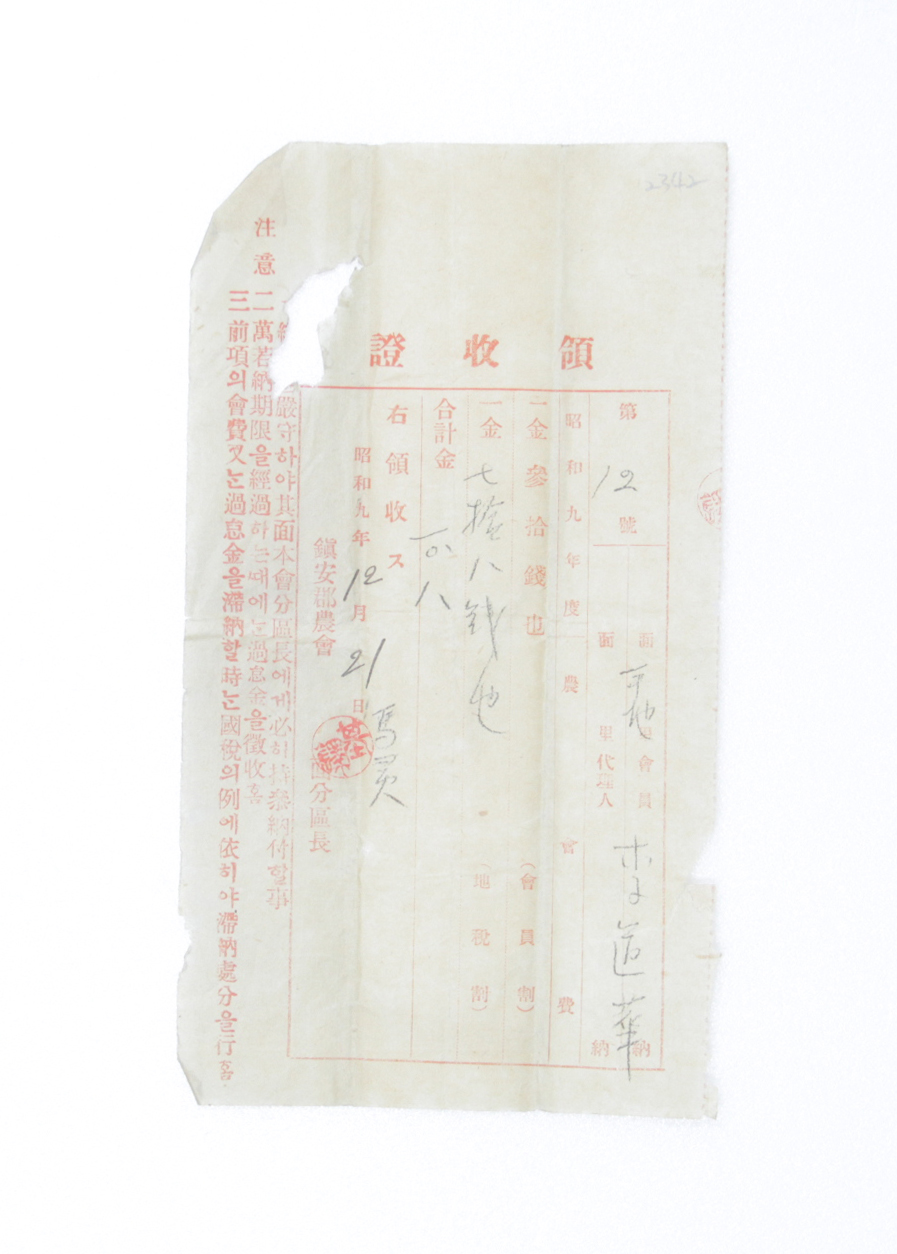 2342
領收證
第12號
面 里會員
面 里代理人
李道華
納
納
昭和九年度農會費
一金參拾錢也(會員割)
一金七拾八錢也(地稅割)
合計金
右領收ス
昭和九年12月21日
鎭安郡農會
面分區長
注意
嚴守하야其面本會分區長에게必히持參納付할事
二 萬若納期限을經過하는때에는過怠金을徵收홈
三 前項의會費又는過怠金을滯納할時는國稅의例에依히야滯納處分을行홈